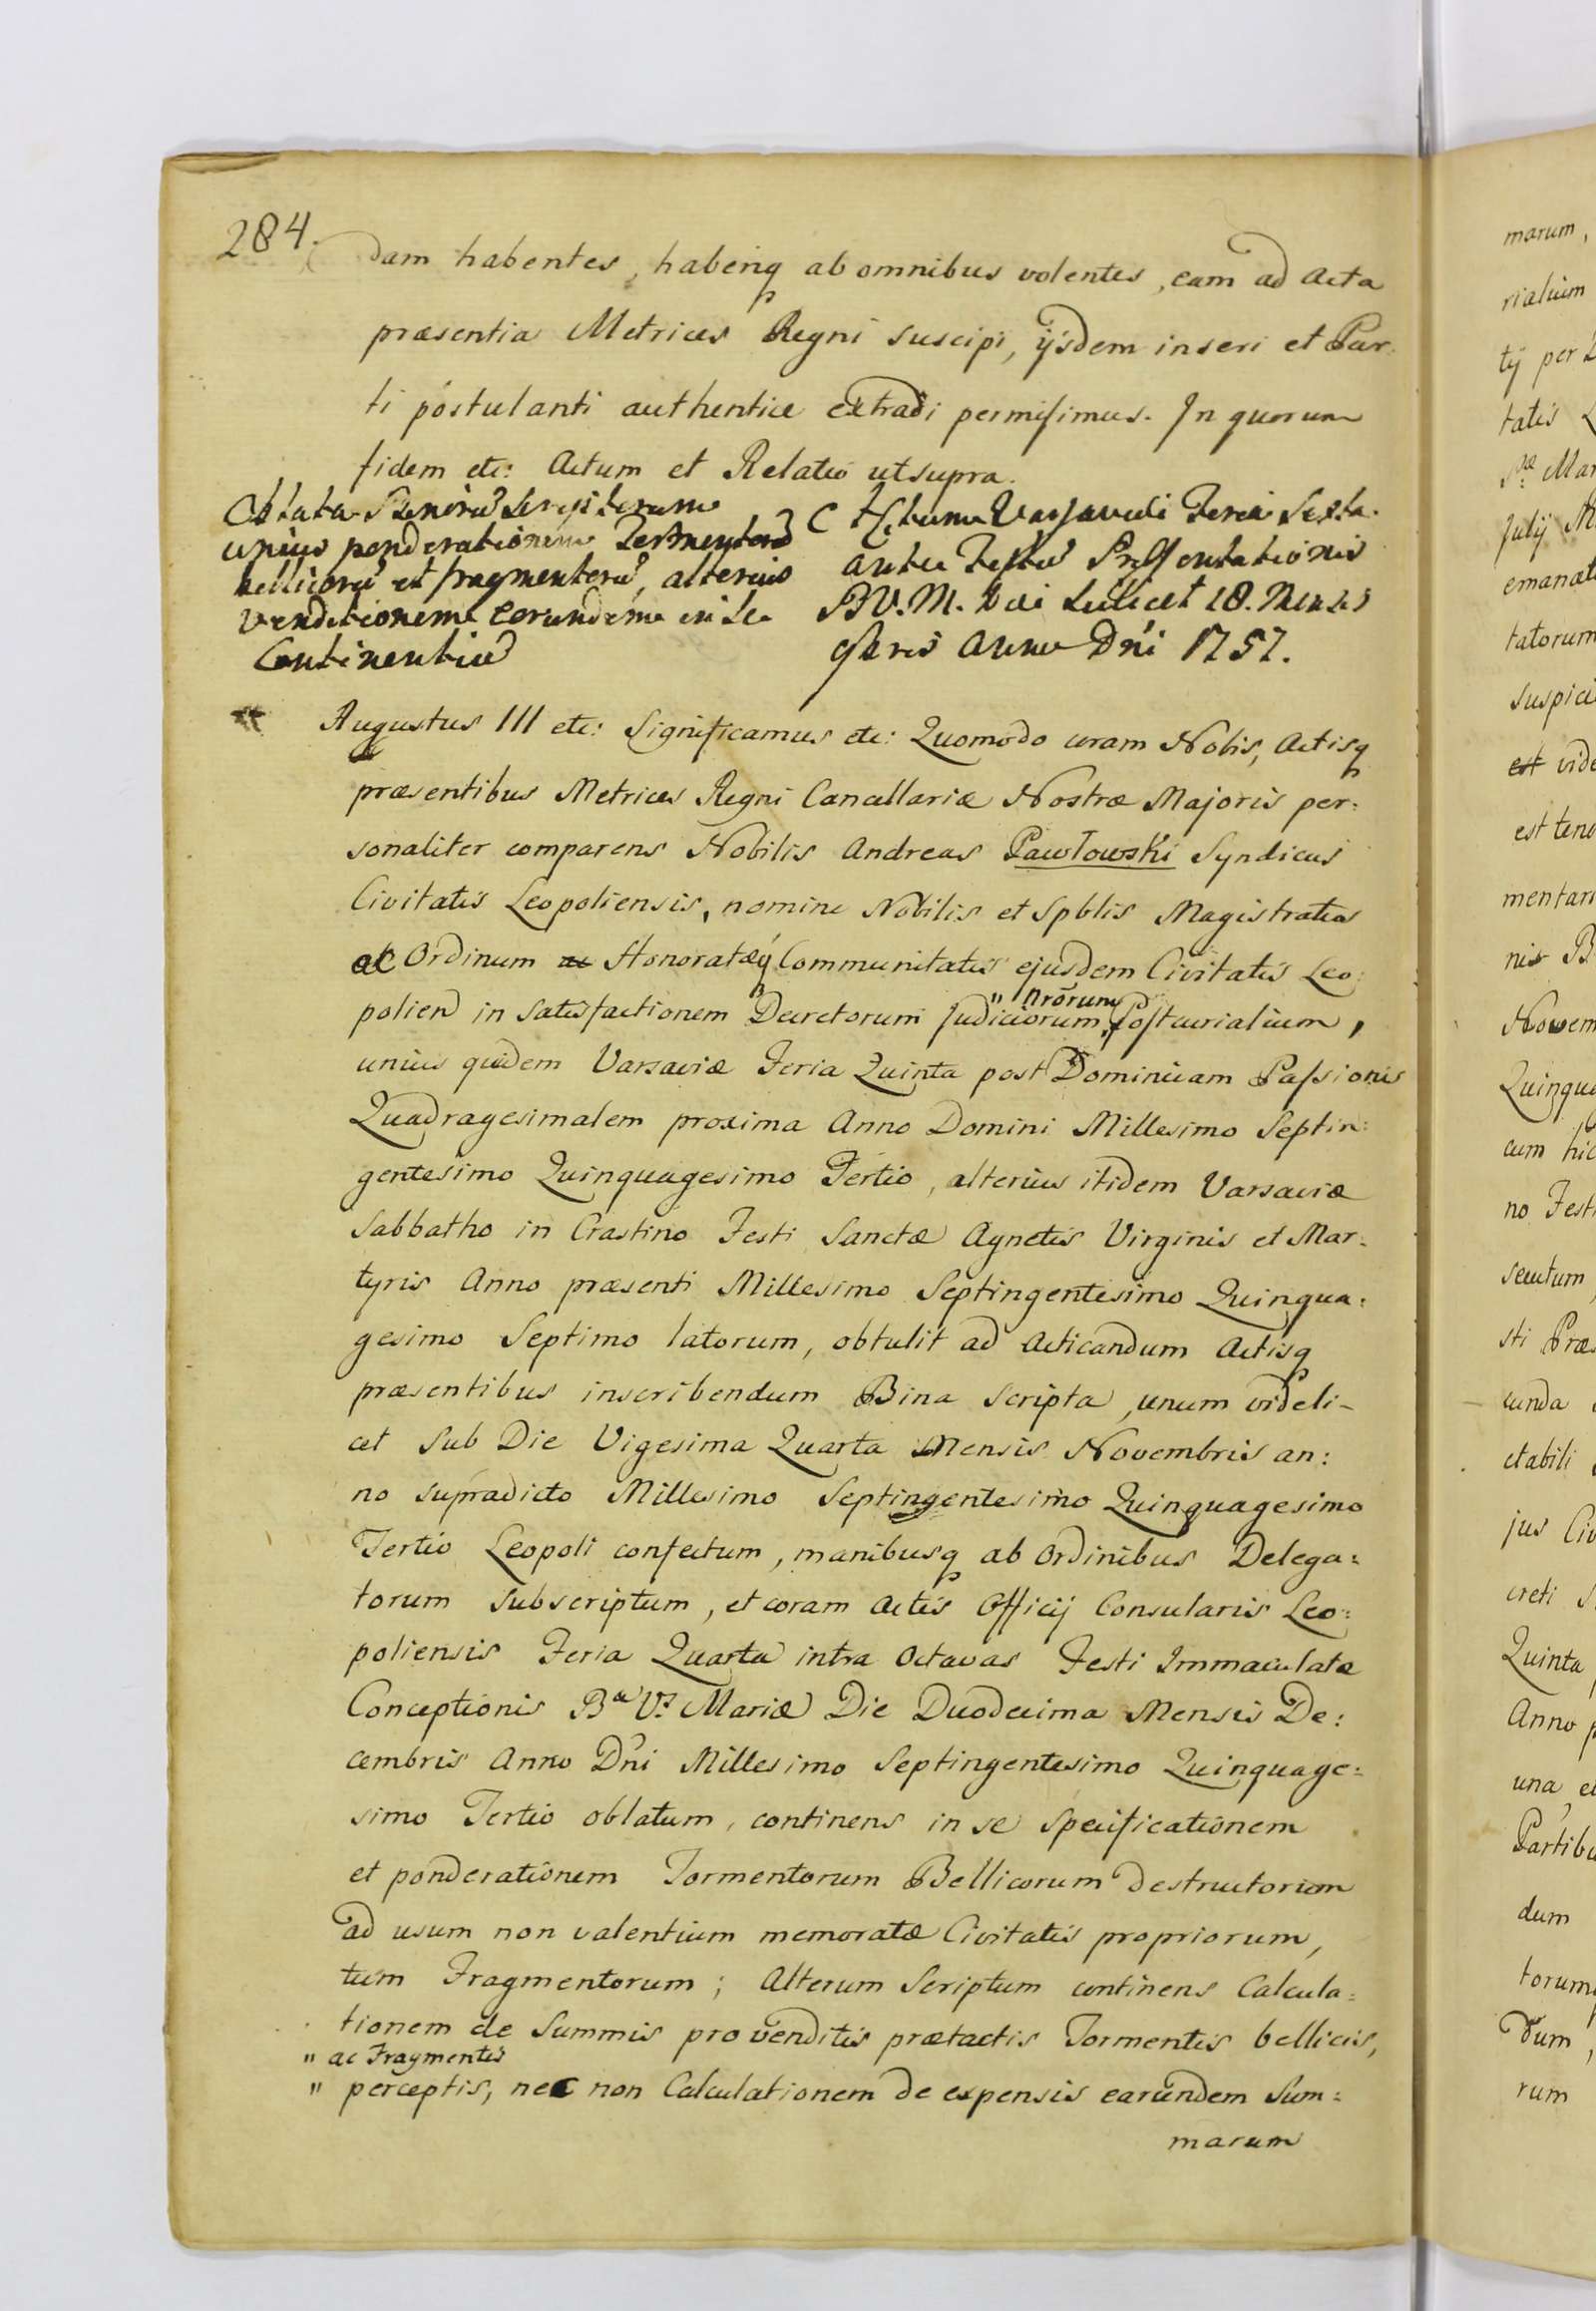 284.
dam habentes, haberiq ab omnibus volentes, eam ad Acta
præsentia Metrices Regni suscipi, ijsdem inseri et Par:
ti postulanti authentice extradi permisimus. In quorum
fidem etc: Actum et Relatio ut supra.
Oblata Binorũ Scriptorum
unius ponderationem Tormentorũ
bellicorũ et fragmentorũ, alterius
venditionem eorundem in se
Continentiũ
Actum Varsaviæ Feria Sexta
ante Festũ Præsentationis
B.V.M. Die scilicet 18. Mensis
9bris Anno Dni 1757.
Augustus III etc: Significamus etc: Quomodo coram Nobis, Actisq
præsentibus Metrices Regni Cancellariæ Nostræ Majoris per:
sonaliter comparens Nobilis Andreas Pawłowski Syndicus
Civitatis Leopoliensis, nomine Nobilis et Spblis Magistratus
ac Ordinum Honoratæq Communitatis ejusdem Civitatis Leo:
" nrorum
polien in satisfactionem Decretorum Judiciorum Postcurialium,
unius quidem Varsaviæ Feria Quinta post Dominicam Passionis
Quadragesimalem proxima Anno Domini Millesimo Septin:
gentesimo Quinquagesimo Tertio, alterius itidem Varsaviæ
Sabbatho in Crastino Festi Sanctæ Agnetis Virginis et Mar:
tyris Anno præsenti Millesimo Septingentesimo Quinqua:
gesimo Septimo latorum, obtulit ad Acticandum Actisq
præsentibus inscribendum Bina Scripta, unum videli-
cet sub Die Vigesima Quarta Mensis Novembris an:
no supradicto Millesimo Septingentesimo Quinquagesimo
Tertio Leopoli confectum, manibusq ab Ordinibus Delega:
torum subscriptum, et coram Actis Officij Consularis Leo:
poliensis Feria Quarta intra Octavas Festi Immaculatæ
Conceptionis Bæ Vs Mariæ Die Duodecima Mensis De:
cembris Anno Dni Millesimo Septingentesimo Quinquage:
simo Tertio oblatum, continens in se Specificationem
et ponderationem Tormentorum Bellicorum destructorum
ad usum non valentium memoratæ Civitatis propriorum,
tum Fragmentorum; Alterum Scriptum continens Calcula:
tionem de Summis pro venditis prætactis Tormentis bellicis,
" ac Fragmentis
" perceptis, nec non Calculationem de expensis earundem Sum:
marum
marum,
rialium
tij per
tatis
Sæ Mar
Julij
emanat
tatorum
suspici
est vide
est teno
mentari
nis B
Novem
Quinqua
cum hic
no Festi
secutum,
sti Præs
cunda
ctabili
jus Civ
creti
Quinta
Anno p
una et
Partibu
dum
torum
dum,
rum